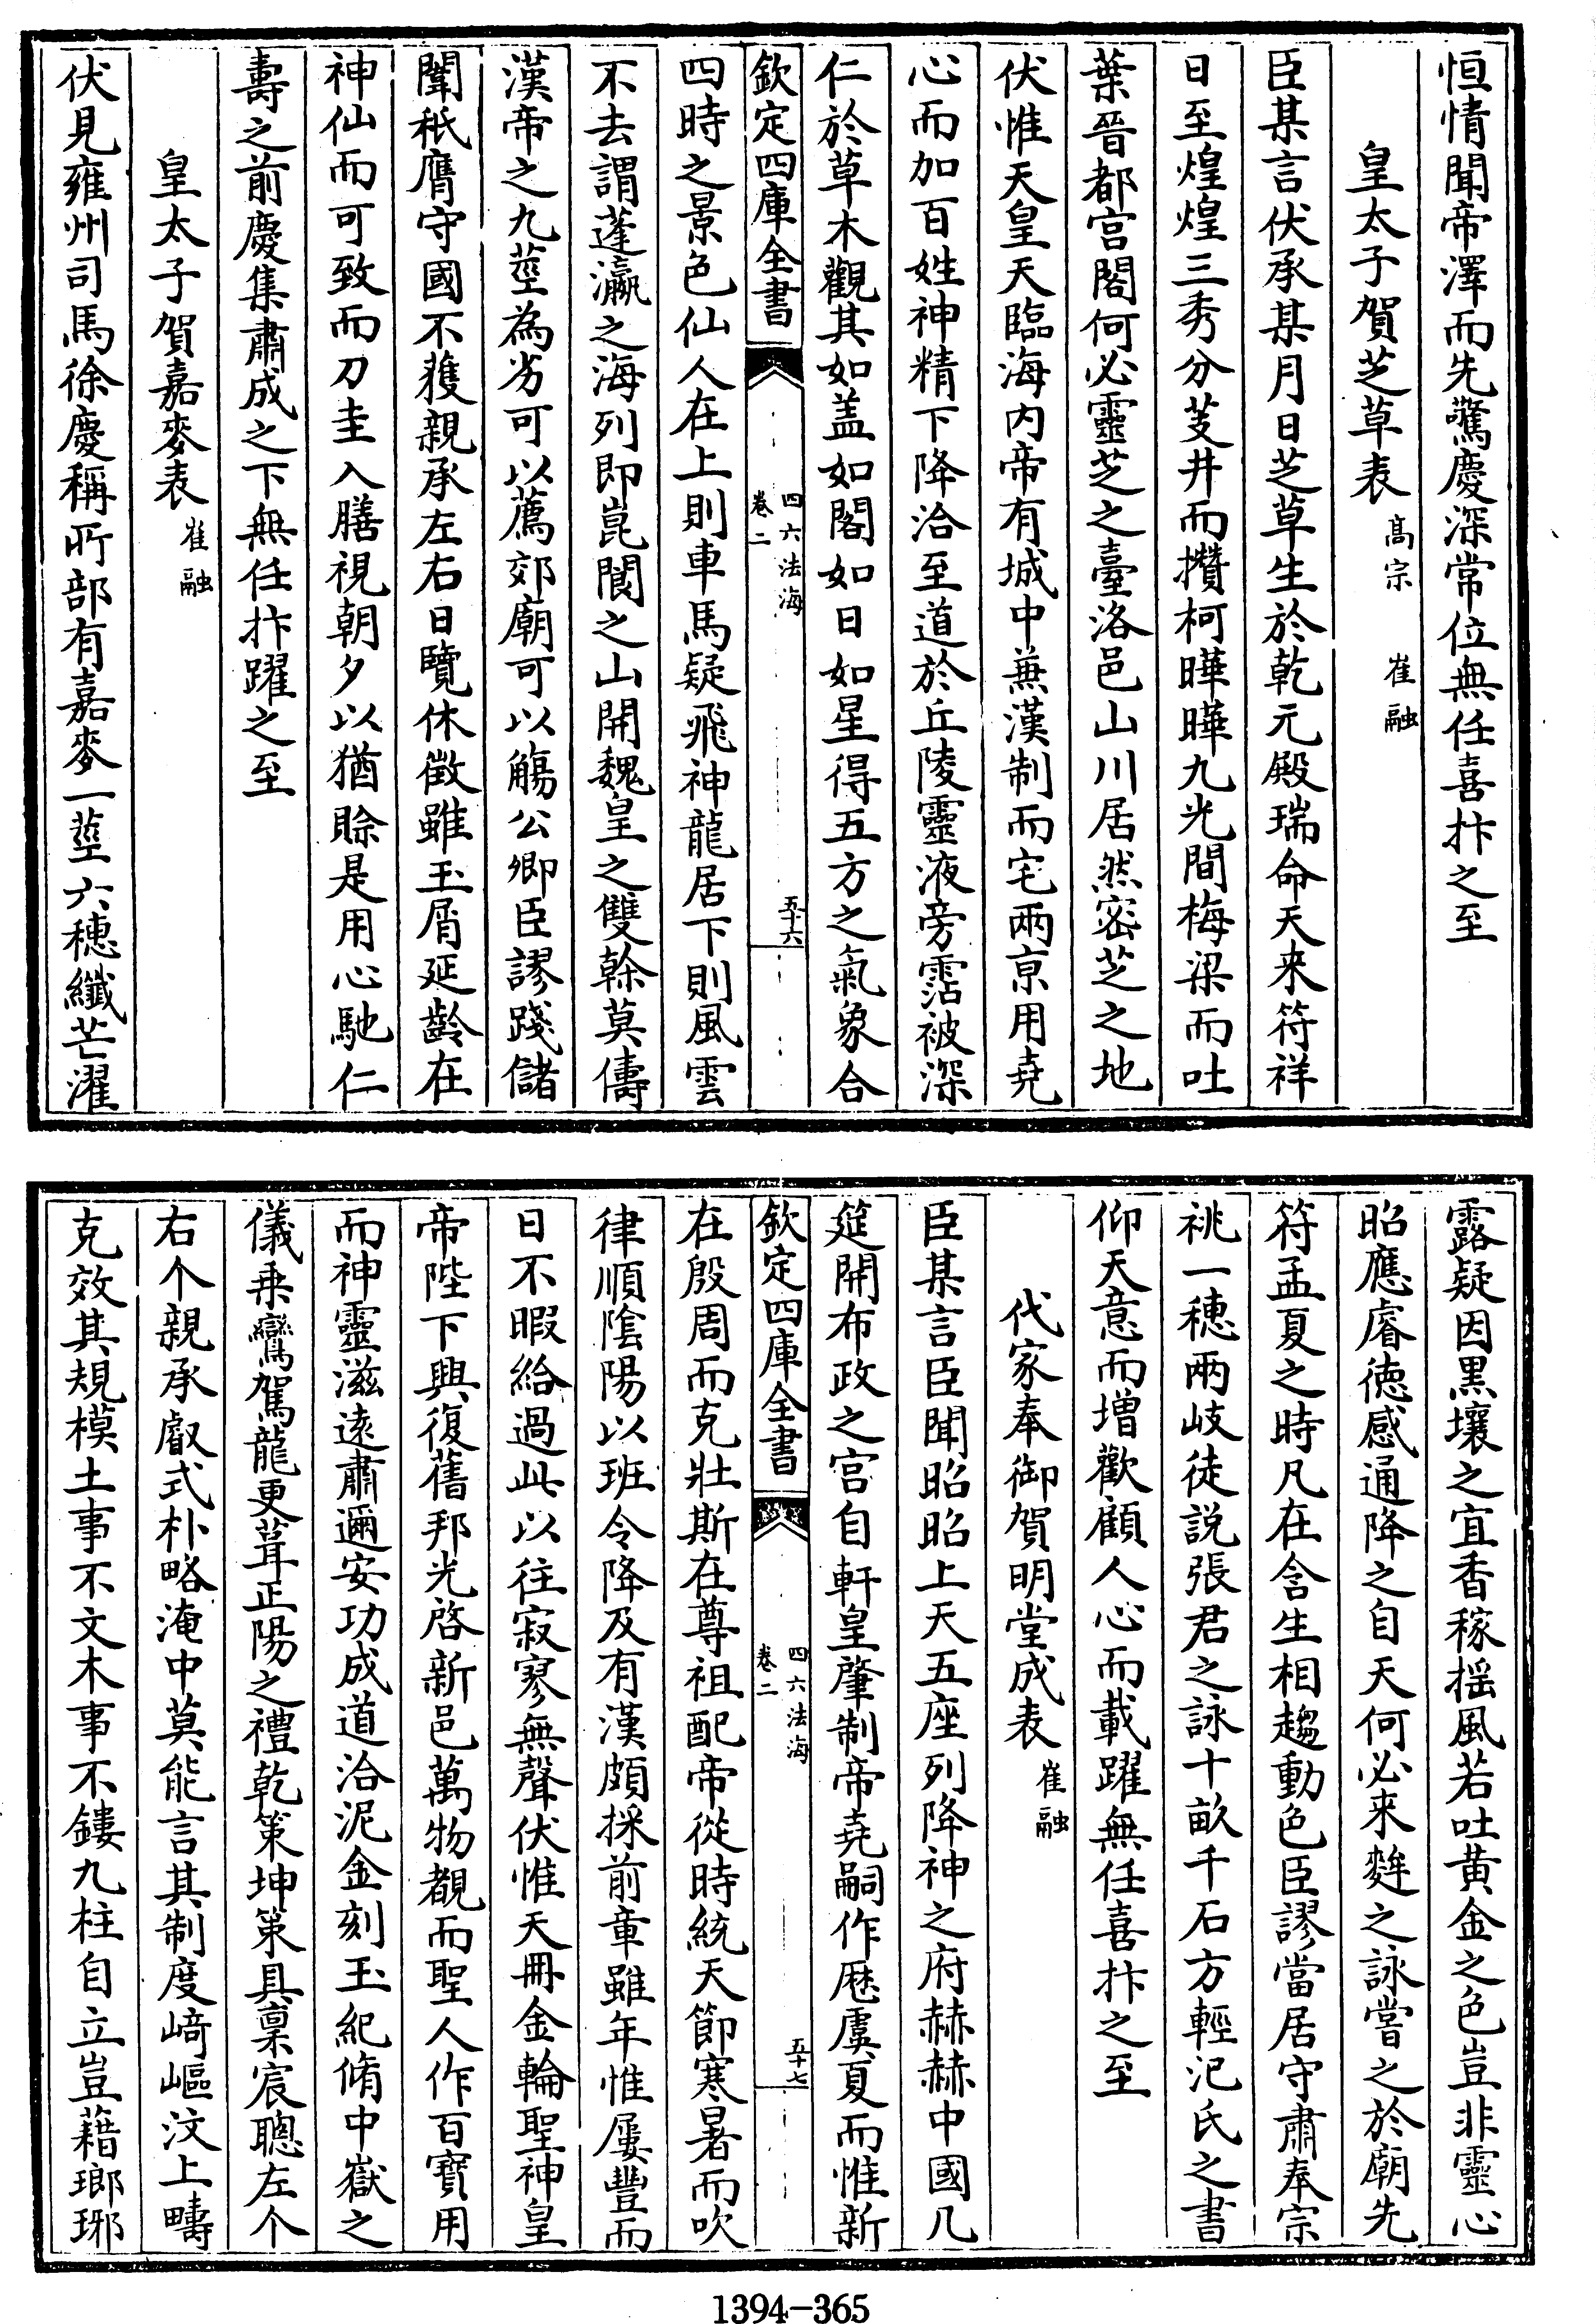 恒情聞帝澤而先驚慶深常位無任喜抃之至
皇太子賀芝草表高宗 崔融
臣某言伏承某月日芝草生於乾元殿瑞命天来符祥
日至煌煌三秀分芰井而攢柯曄曄九光間梅梁而吐
葉晉都宫閣何必靈芝之臺洛邑山川居然密芝之地
伏惟天皇天臨海内帝有城中兼漢制而宅兩京用堯
心而加百姓神精下降洽至道於丘陵靈液旁霑被深
仁於草木觀其如盖如閣如日如星得五方之氣象合
欽定四庫全書
四六法海
卷二
五十六
四時之景色仙人在上則車馬疑飛神龍居下則風雲
不去謂蓬瀛之海列即崑閬之山開魏皇之雙幹莫儔
漢帝之九莖為劣可以薦郊廟可以觴公卿臣謬踐儲
闈秖膺守國不獲親承左右日覽休徵雖玉屑延齡在
神仙而可致而刀圭入膳視朝夕以猶賒是用心馳仁
壽之前慶集肅成之下無任抃躍之至
皇太子賀嘉麥表崔融
伏見雍州司馬徐慶稱所部有嘉麥一莖六穗纖芒濯
露疑因黒壤之宜香稼揺風若吐黄金之色豈非靈心
昭應睿徳感通降之自天何必来麰之詠嘗之於廟先
符孟夏之時凡在含生相趨動色臣謬當居守肅奉宗
祧一穗兩岐徒説張君之詠十畝千石方輕汜氏之書
仰天意而增歡顧人心而載躍無任喜抃之至
代家奉御賀明堂成表崔融
臣某言臣聞昭昭上天五座列降神之府赫赫中國几
筵開布政之宫自軒皇肇制帝堯嗣作歴虞夏而惟新
欽定四庫全書
四六法海
卷二
五十七
在殷周而克壯斯在尊祖配帝從時統天節寒暑而吹
律順陰陽以班令降及有漢頗採前章雖年惟屢豐而
日不暇給過此以往寂寥無聲伏惟天冊金輪聖神皇
帝陛下興復舊邦光啓新邑萬物覩而聖人作百寳用
而神靈滋逺肅邇安功成道洽泥金刻玉紀脩中嶽之
儀乗鸞駕龍更葺正陽之禮乾策坤策具稟宸聰左个
右个親承叡式朴略淹中莫能言其制度﨑嶇汶上疇
克效其規模土事不文木事不鏤九柱自立豈藉瑯琊
1394-365